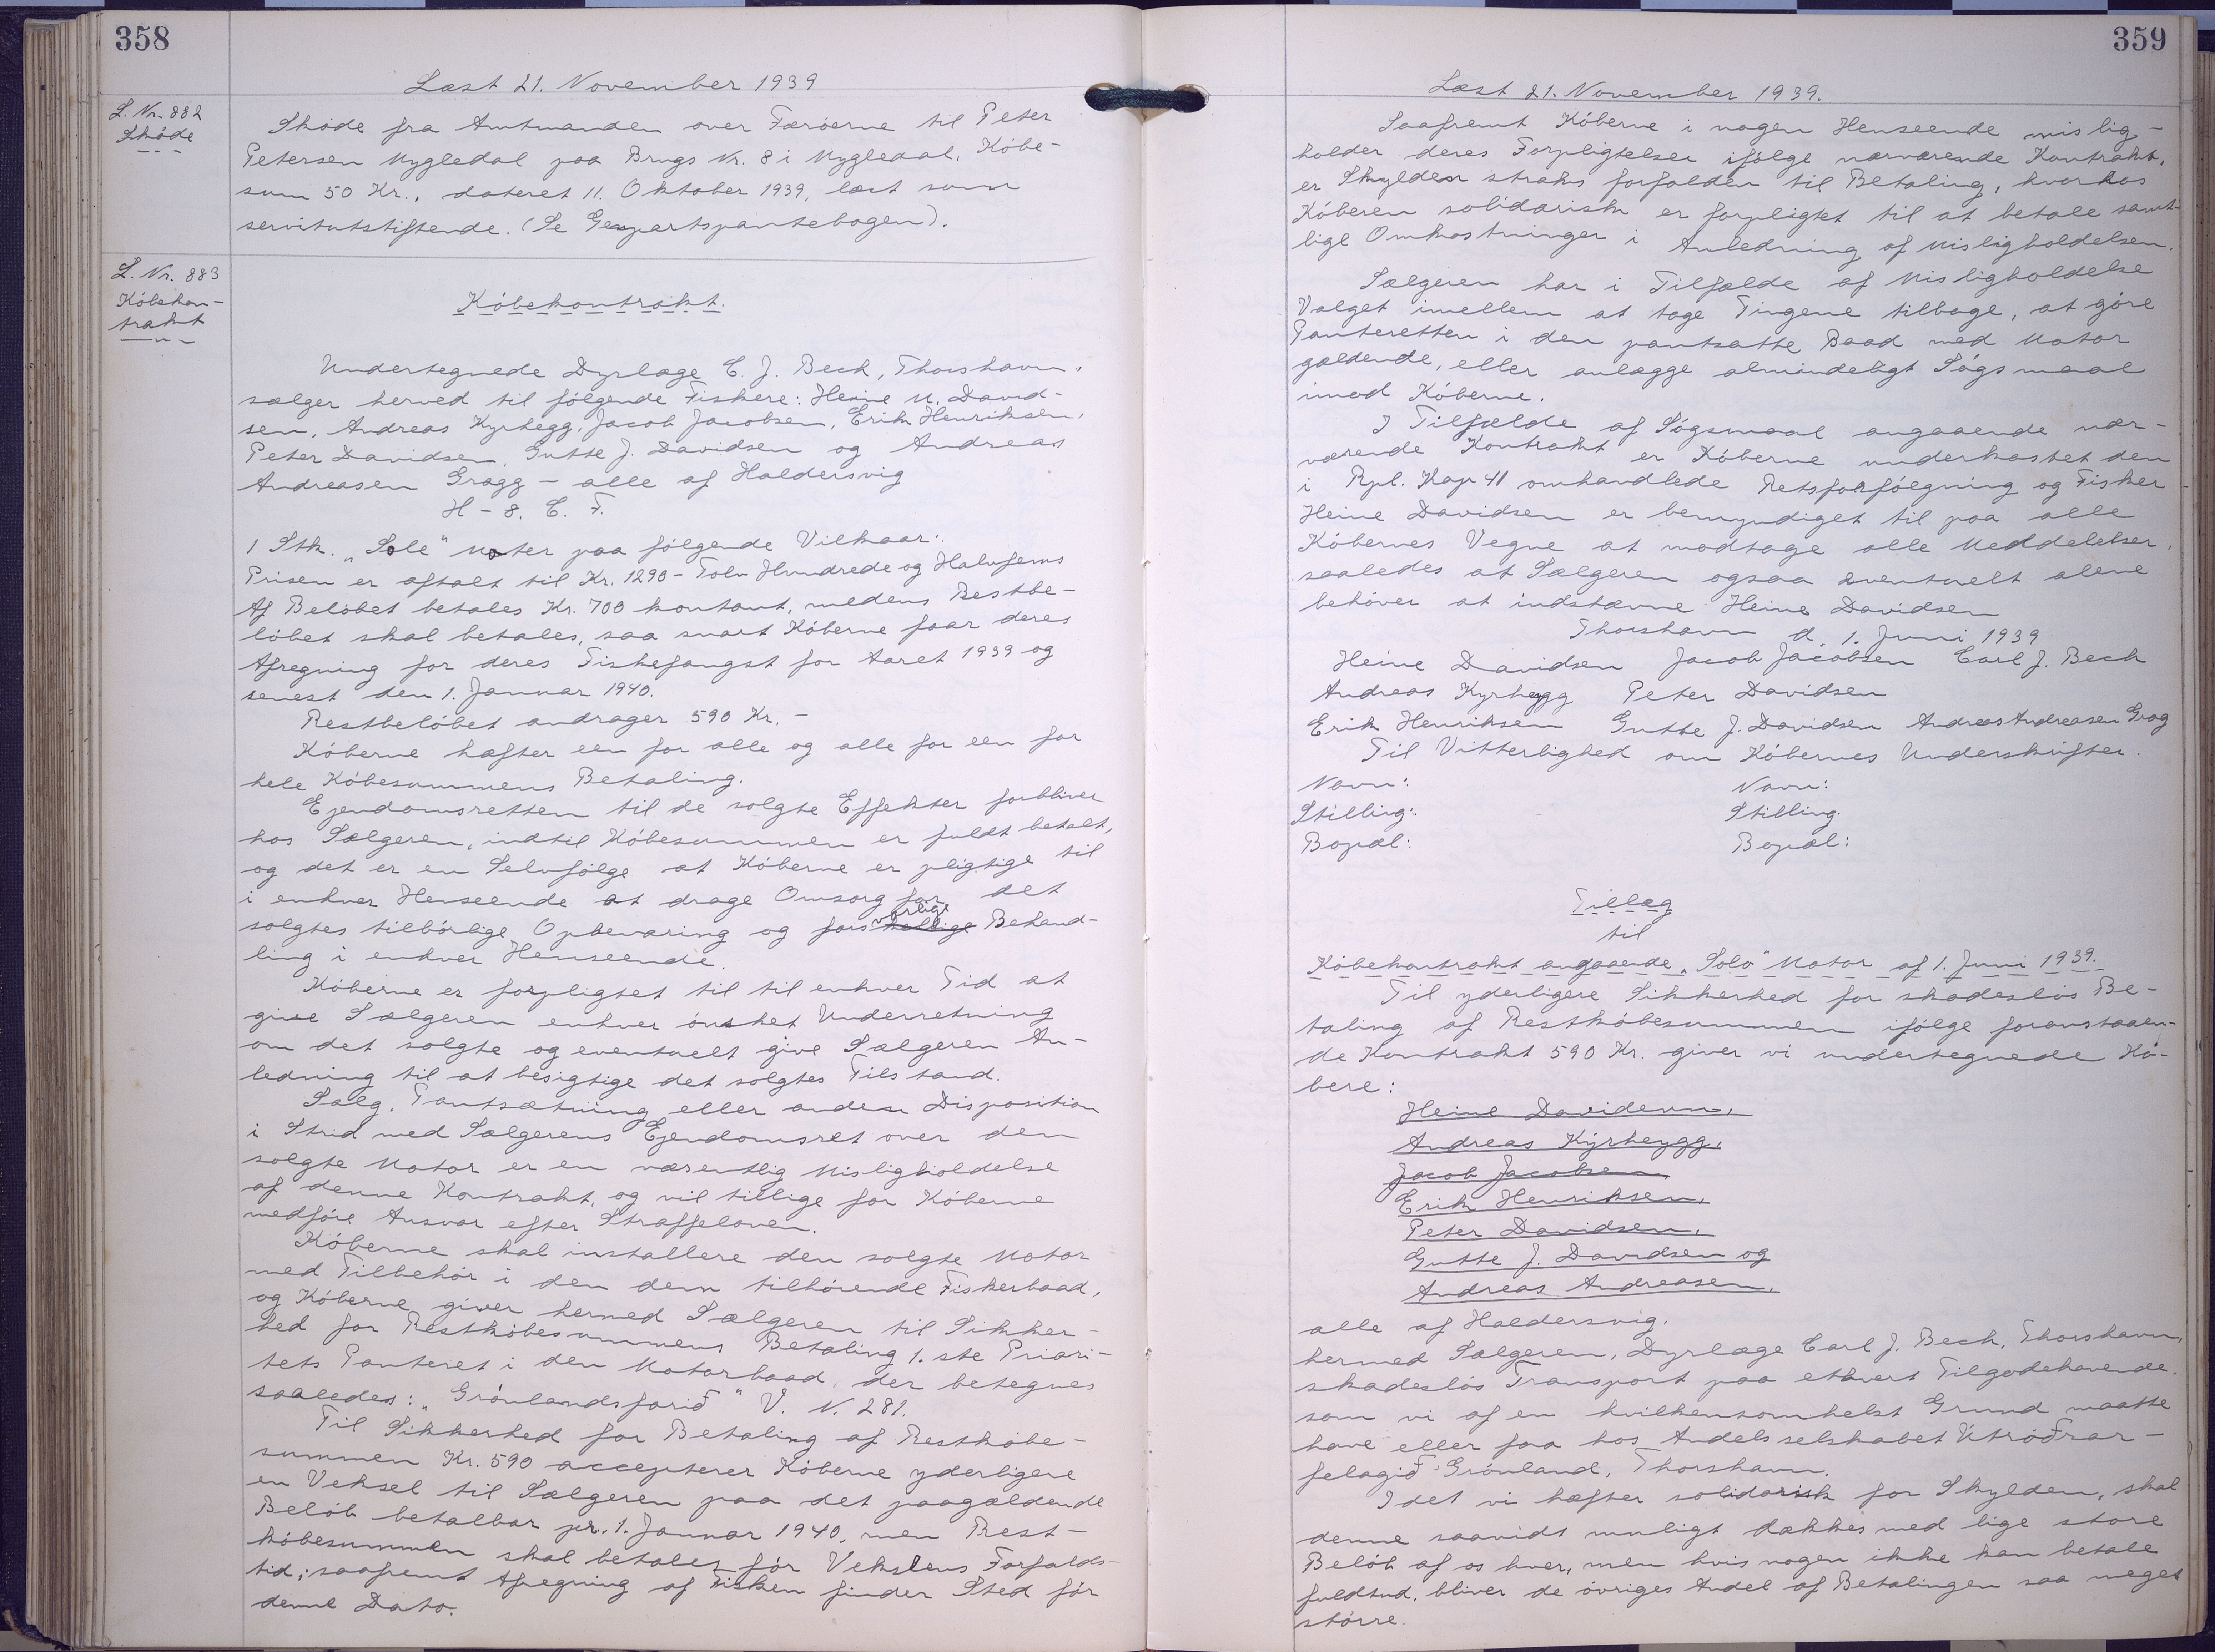 358
Læst 21. November 1939
L. Nr. 882
Skóde
Skóde fra Amtmanden over Færóerne til Peter
Petersen Mygledal paa Brugs Nr. 8 i Mygledal, Kóbe-
sum 50 Kr., dateret 11. Oktober 1939, læst som
servitutstiftende. (Se Genpartspantebogen).
L. Nr. 883
Kóbekon-
trakt
Kóbekontrakt.
Undertegnede Dyrlæge C. J. Bech, Thorshavn,
sælger herved til fólgende Fiskere: Heine M. David-
sen, Andreas Kyrhegg, Jacob Jacobsen, Erik Henriksen,
Peter Davidsen, Gutte J. Davidsen og Andreas
Andreasen Gragg - alle af Haldersvig
H - 8. C. F.
1 Stk. "Solo" Motor paa fólgende Vilkaar:
Prisen er aftalt til Kr. 1290 - Tolv Hundrede og Halvfems
Af Belóbet betales Kr. 700 kontant, medens Restbe-
lóbet skal betales, saa snart Kóberne faar deres
Afregning for deres Fiskefangst for Aaret 1939 og
senest den 1. Januar 1940.
Restbelóbet andrager 590 Kr. -
Kóberne hæfter een for alle og alle for een for
hele Kóbesummens Betaling.
Ejendomsretten til de solgte Effekter forbliver
hos Sælgeren, indtil Kóbesummen er fuldt betalt,
og det er en Selvfólge at Kóberne er pligtige til
i enhver Henseende at drage Omsorg for det
solgtes tilbórlige Opbevaring og forsvarlige Behand-
ling i enhver Henseende.
Kóberne er forpligtet til til enhver Tid at
give Sælgeren enhver ónsket Underretning
om det solgte og eventuelt give Sælgeren An-
ledning til at besigtige det solgtes Tilstand.
Salg, Pantsætning eller anden Disposition
i Strid med Sælgerens Ejendomsret over den
solgte Motor er en væsentlig Misligholdelse
af denne Kontrakt, og vil tillige for Kóberne
medfóre Ansvar efter Straffeloven.
Kóberne skal installere den solgte Motor
med Tilbehór i den dem tilhórende Fiskerbaad,
og Kóberne giver hermed Sælgeren til Sikker-
hed for Restkóbesummens Betaling 1. ste Priori-
tets Panteret i den Motorbaad, der betegnes
saaledes: "Grónlandsfarið" V. N. 281.
Til Sikkerhed for Betaling af Restkóbe-
summen Kr. 590 accepterer Kóberne yderligere
en Veksel til Sælgeren paa det paagældende
Belób betalbar pr. 1. Januar 1940, men Rest-
kóbesummen skal betales fór Vekslens Forfalds-
tid, saafremt Afregning af Fisken finder Sted fór
denne Dato.
359
Læst 21. November 1939.
Saafremt Kóberne i nogen Henseende mislig-
holder deres Forpligtelser ifólge nærværende Kontrakt,
er Skylden straks forfalden til Betaling, hvorhos
Kóberen solidarisk er forpligtet til at betale samt-
lige Omkostninger i Anledning af Misligholdelsen.
Sælgeren har i Tilfælde af Misligholdelse
Valget imellem at tage Tingene tilbage, at góre
Panteretten i den pantsatte Baad med Motor
gældende, eller anlægge almindeligt Sógsmaal
imod Kóberne.
I Tilfælde af Sógsmaal angaaende nær-
værende Kontrakt er Kóberne underkastet den
i Rpl. Kap 41 omhandlede Retsforfólgning og Fisker
Heine Davidsen er bemyndiget til paa alle
Kóbernes Vegne at modtage alle Meddelelser,
saaledes at Sælgeren ogsaa eventuelt alene
behóver at indstævne Heine Davidsen
Thorshavn d. 1. Juni 1939
Heine Davidsen Jacob Jacobsen Carl J. Bech
Andreas Kyrhegg Peter Davidsen
Erik Henriksen Gutte J. Davidsen Andreas Andreasen Grag
Til Vitterlighed om Kóbernes Underskrifter.
Navn: Navn:
Stilling: Stilling.
Bopæl: Bopæl:
Tillæg
til
Kóbekontrakt angaaende "Solo" Motor af 1. Juni 1939.
Til yderligere Sikkerhed for skadeslós Be-
taling af Restkóbesummen ifólge foranstaaen-
de Kontrakt 590 Kr. giver vi undertegnede Kó-
bere:
Heine Davidsen,
Andreas Kyrheygg,
Jacob Jacobsen,
Erik Henriksen,
Peter Davidsen,
Gutte J. Davidsen og
Andreas Andreasen,
alle af Haldersvig.
hermed Sælgeren, Dyrlæge Carl J. Bech, Thorshavn,
skadeslós Transport paa ethvert Tilgodehavende,
som vi af en hvilkensomhelst Grund maatte
have eller faa hos Andelsselskabet Útróðrar-
felagið Grónland, Thorshavn.
Idet vi hæfter solidarisk for Skylden, skal
denne saavidt muligt dækkes med lige store
Belób af os hver, men hvis nogen ikke kan betale
fuldtud, bliver de óvriges Andel af Betalingen saa meget
stórre.